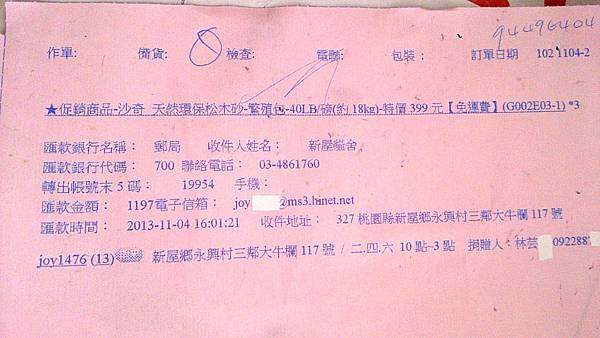 94496404
作單: 備貨: 8 檢查: 電聽: 包裝 : 訂單日期 102 1104-2
★促銷商品-沙奇 天然環保松木砂-繁殖包-40LB/磅(約 18kg)-特價 399 元【免運費】(G002E03-1) *3
匯款銀行名稱： 郵局 收件人姓名： 新屋貓舍
匯款銀行代碼： 700 聯絡電話： 03-4861760
轉出帳號末 5 碼： 19954 手機：
匯款金額： 1197電子信箱： joy @ms3.hinet.net
匯款時間： 2013-11-04 16:01:21 收件地址： 327 桃園縣新屋鄉永興村三鄰大牛欄 117 號
joy1476 (13) 新屋鄉永興村三鄰大牛欄 117 號 / 二.四.六 10 點~3 點 捐贈人：林芸 0922887